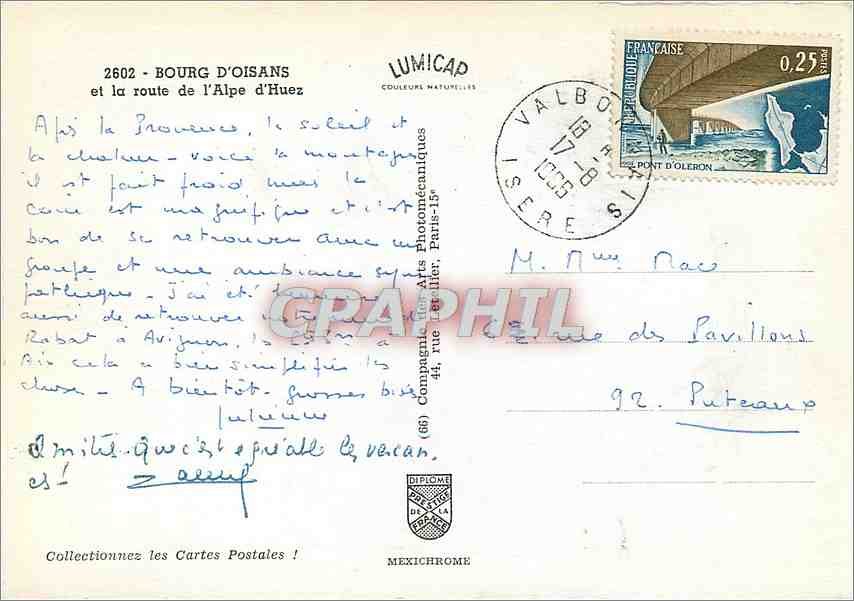 2602 - BOURG D'OISANS
et la route de l'Alpe d'Huez
LUMICAP
COULEURS NATURELLES
REPUBLIQUE FRANÇAISE
0,25
POSTES
PONT D'OLERON
VALBONNAIS
18 H
17-8
1966
ISERE
Après la Provence, le soleil et
la chaleur - voici la montagne
il est fait froid mais le
coin est magnifique et c'est
bon de se retrouver avec un
groupe et une ambiance sym
pathique - J'ai été heureuse
aussi de retrouver
Rabat à Avignon, à
Aix cela a bien simplifié les
choses - A bientôt - grosses bises
Amitiés. Que c'est agréable les vacan
ces !
M. Mme Macé
rue des Pavillons
92. Puteaux
(66) Compagnie des Arts Photomécaniques
44, rue Letellier, Paris-15e
CPAPHIL
DIPLOME
PRESTIGE
DE LA
FRANCE
MEXICHROME
Collectionnez les Cartes Postales !